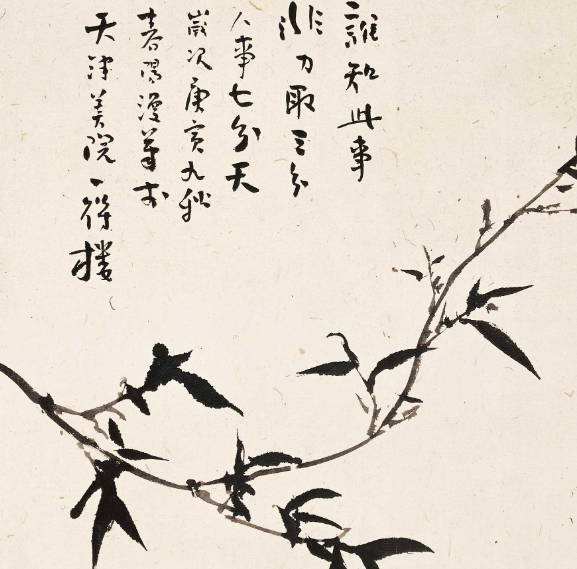 誰知此事
非力取三分
人事七分天
歲次庚寅九秋
春陽漫筆於
天津美院一得楼